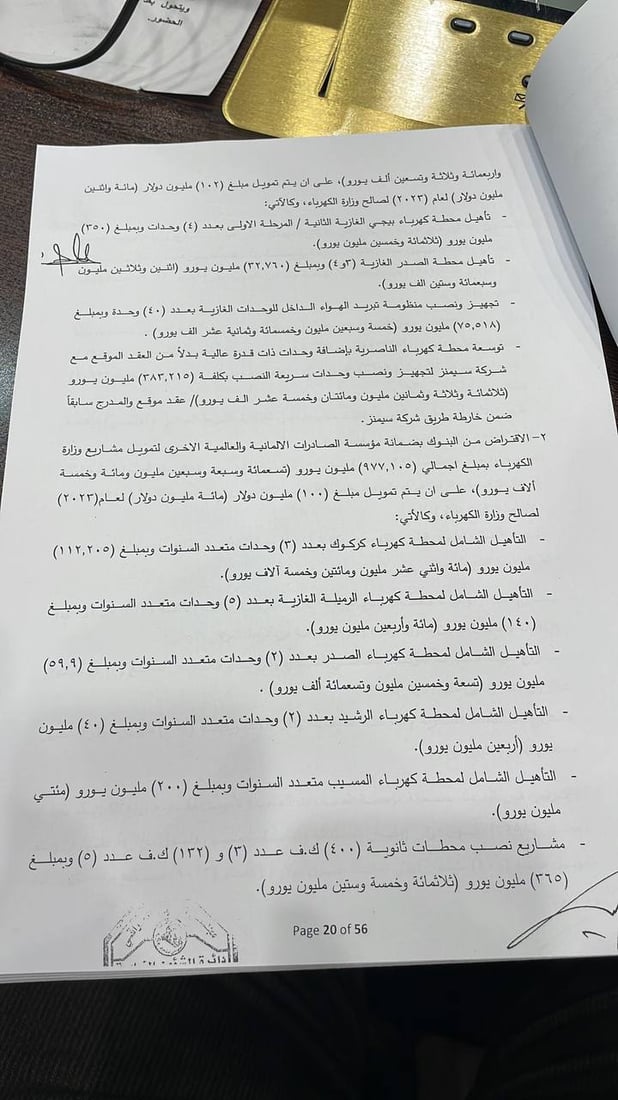 ويتحول بعد
الحضور.
واربعمائة وثلاثة وتسعين ألف يورو)، على ان يتم تمويل مبلغ (١٠٢) مليون دولار (مائة واثنين
مليون دولار) لعام (٢٠٢٣) لصالح وزارة الكهرباء، وكالآتي:
- تأهيل محطة كهرباء بيجي الغازية الثانية / المرحلة الاولى بعدد (٤) وحدات وبمبلغ (٣٥٠)
مليون يورو (ثلاثمائة وخمسين مليون يورو).
- تأهيل محطة الصدر الغازية (٣و٤) وبمبلغ (٣٢,٧٦٠) مليون يورو (اثنين وثلاثين مليون
وسبعمائة وستين الف يورو).
- تجهيز ونصب منظومة تبريد الهواء الداخل للوحدات الغازية بعدد (٤٠) وحدة وبمبلغ
(٧٥,٥١٨) مليون يورو (خمسة وسبعين مليون وخمسمائة وثمانية عشر الف يورو) .
- توسعة محطة كهرباء الناصرية بإضافة وحدات ذات قدرة عالية بدلاً من العقد الموقع مع
شركة سيمنز لتجهيز ونصب وحدات سريعة النصب بكلفة (٣٨٣,٢١٥) مليون يورو
(ثلاثمائة وثلاثة وثمانين مليون ومائتان وخمسة عشر الف يورو)/ عقد موقع والمدرج سابقاً
ضمن خارطة طريق شركة سيمنز.
٢- الاقتراض من البنوك بضمانة مؤسسة الصادرات الالمانية والعالمية الاخرى لتمويل مشاريع وزارة
الكهرباء بمبلغ اجمالي (٩٧٧,١٠٥) مليون يورو (تسعمائة وسبعة وسبعين مليون ومائة وخمسة
ألاف يورو)، على ان يتم تمويل مبلغ (١٠٠) مليون دولار (مائة مليون دولار) لعام(٢٠٢٣)
لصالح وزارة الكهرباء، وكالأتي:
- التأهيل الشامل لمحطة كهرباء كركوك بعدد (٣) وحدات متعدد السنوات وبمبلغ (١١٢,٢٠٥)
مليون يورو (مائة واثني عشر مليون ومائتين وخمسة آلاف يورو).
- التأهيل الشامل لمحطة كهرباء الرميلة الغازية بعدد (٥) وحدات متعدد السنوات وبمبلغ
(١٤٠) مليون يورو (مائة وأربعين مليون يورو).
- التأهيل الشامل لمحطة كهرباء الصدر بعدد (٢) وحدات متعدد السنوات وبمبلغ (٥٩,٩)
مليون يورو (تسعة وخمسين مليون وتسعمائة ألف يورو) .
- التأهيل الشامل لمحطة كهرباء الرشيد بعدد (٢) وحدات متعدد السنوات وبمبلغ (٤٠) مليون
يورو (أربعين مليون يورو).
- التأهيل الشامل لمحطة كهرباء المسيب متعدد السنوات وبمبلغ (٢٠٠) مليون يورو (مئتي
مليون يورو).
- مشاريع نصب محطات ثانوية (٤٠٠) ك.ف عدد (٣) و (١٣٢) ك.ف عدد (٥) وبمبلغ
(٣٦٥) مليون يورو (ثلاثمائة وخمسة وستين مليون يورو).
Page 20 of 56